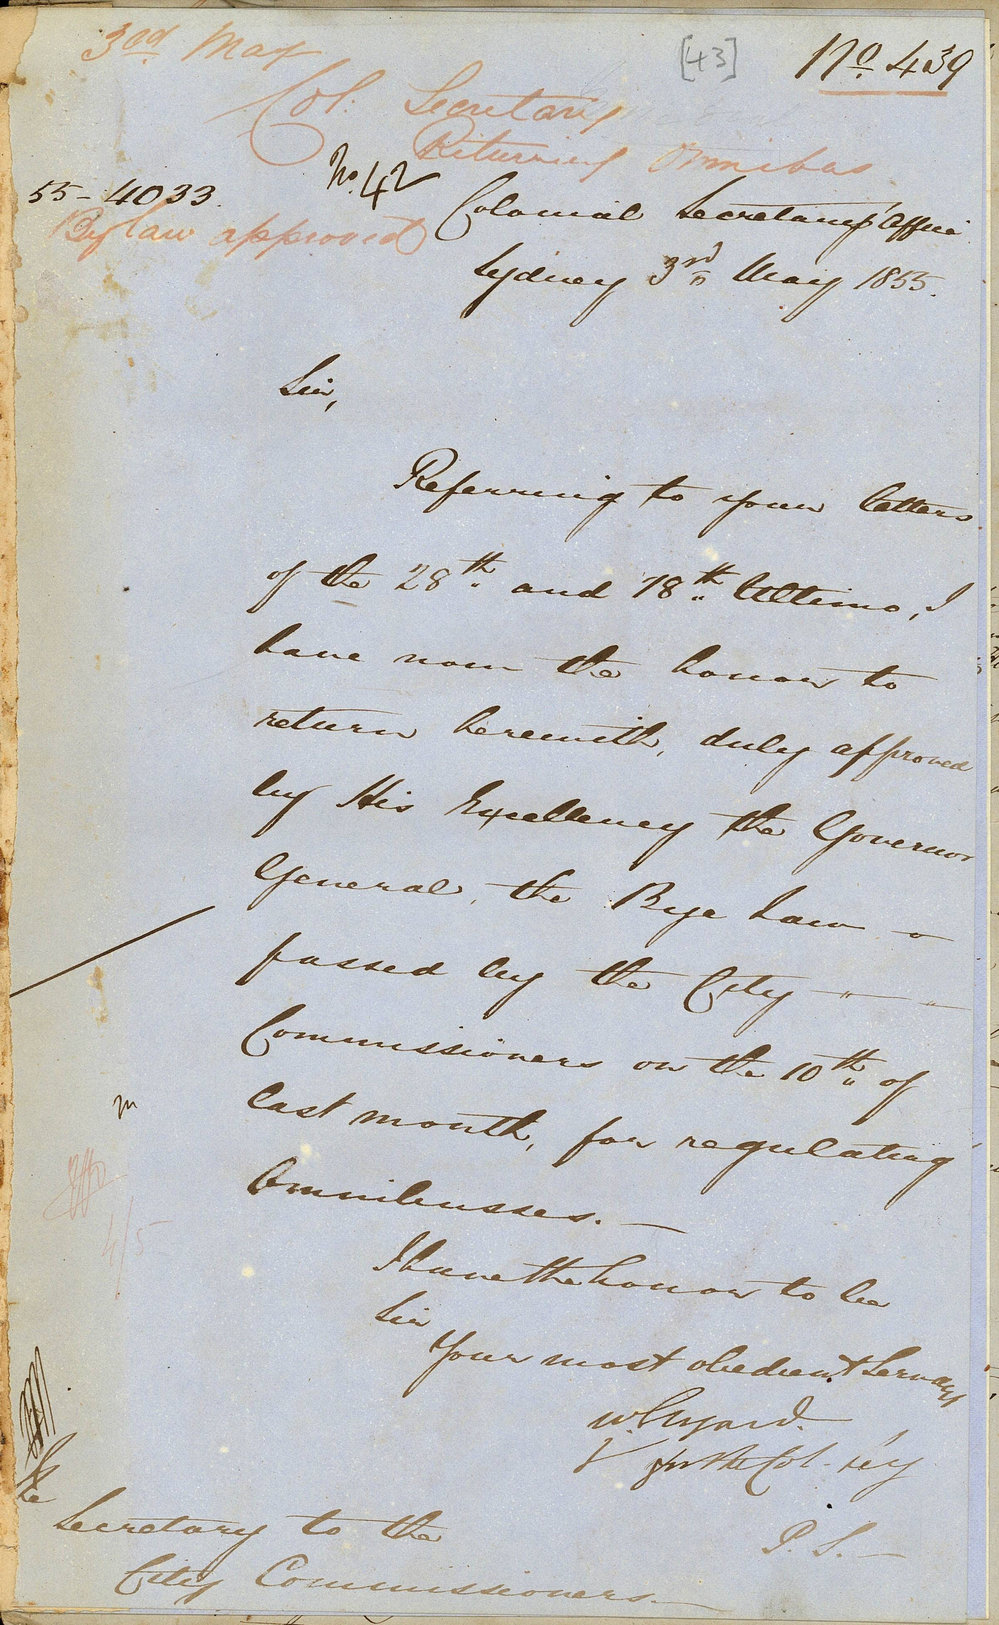 3rd May
[43]
No. 439
Col: Secretary
Returning Omnibus
No. 42
55-4033.
Bylaw approved
Colonial Secretary's Office
Sydney 3rd May 1855.
Sir,
Referring to your letters
of the 28th and 18th Ultimo, I
have now the honor to
return herewith, duly approved
by His Excellency the Governor
General, the Bye Law
passed by the City
Commissioners on the 10th of
last month, for regulating
Omnibusses.
I have the honor to be
Sir
Your most obedient Servant
W. Elyard.
for the Col. Secy
4/5
The
Secretary to the
City Commissioners.
P.S.